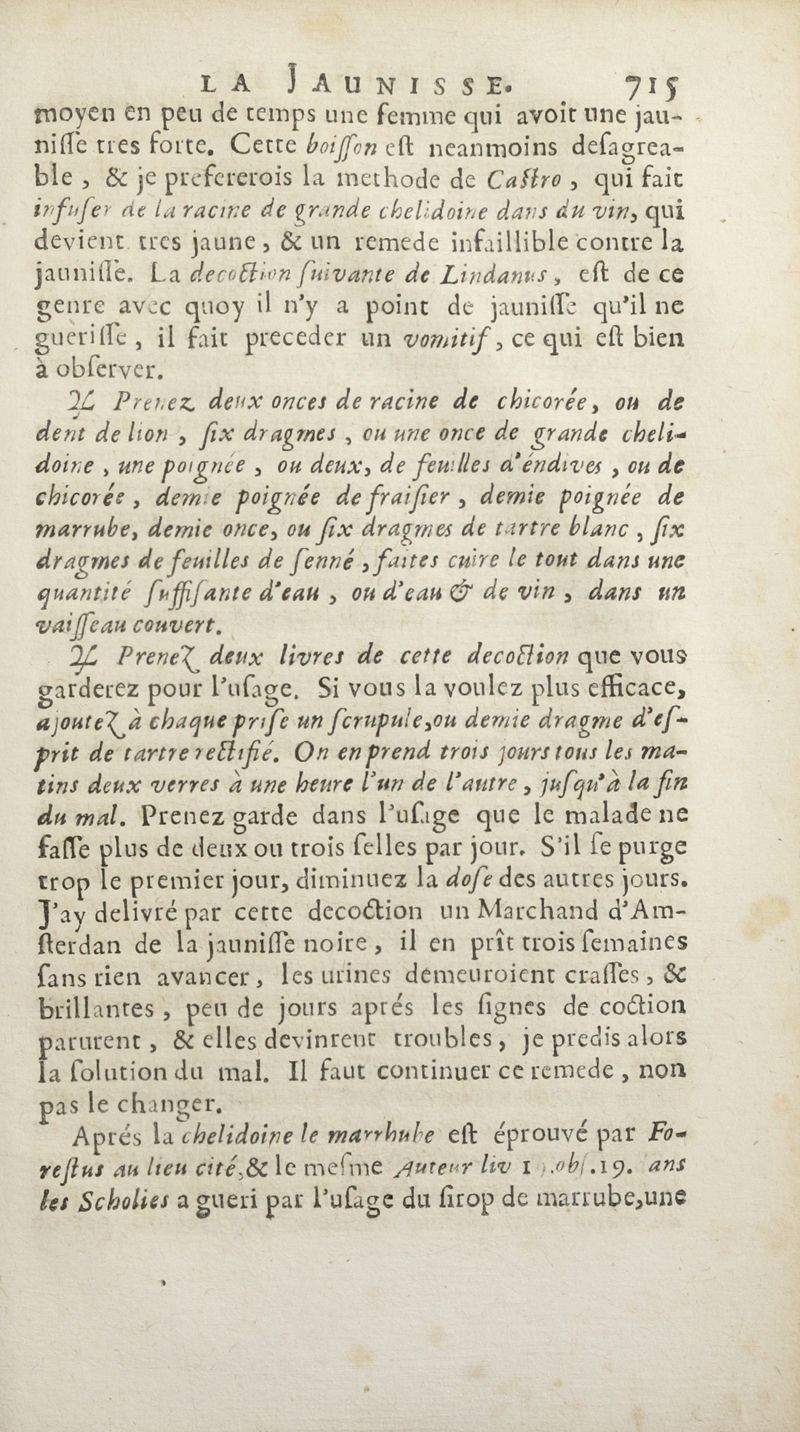 LA JAUNISSE. 715
moyen en peu de temps une femme qui avoit une jau-
niſſe tres forte. Cette boiſſon eſt neanmoins deſagrea-
ble, & je prefererois la methode de Caſtro, qui fait
infuſer de la racine de grande chelidoine dans du vin, qui
devient tres jaune, & un remede infaillible contre la
jauniſſe. La decoction ſuivante de Lindanus, eſt de ce
genre avec quoy il n'y a point de jauniſſe qu'il ne
gueriſſe, il fait preceder un vomitif, ce qui eſt bien
à obſerver.
♃ Prenez deux onces de racine de chicorée, ou de
dent de lion, ſix dragmes, ou une once de grande cheli-
doine, une poignée, ou deux, de feuilles d'éndives, ou de
chicorée, demie poignée de fraiſier, demie poignée de
marrube, demie once, ou ſix dragmes de tartre blanc, ſix
dragmes de feuilles de ſenné, faites cuire le tout dans une
quantité ſuffiſante d'eau, ou d'eau & de vin, dans un
vaiſſeau couvert.
♃ Prenez deux livres de cette decoction que vous
garderez pour l'uſage. Si vous la voulez plus efficace,
ajoutez à chaque priſe un ſcrupule, ou demie dragme d'eſ-
prit de tartre rectifié. On en prend trois jours tous les ma-
tins deux verres à une heure l'un de l'autre, juſqu'à la fin
du mal. Prenez garde dans l'uſage que le malade ne
faſſe plus de deux ou trois ſelles par jour. S'il ſe purge
trop le premier jour, diminuez la doſe des autres jours.
J'ay delivré par cette decoction un Marchand d'Am-
ſterdan de la jauniſſe noire, il en prît trois ſemaines
ſans rien avancer, les urines demeuroient craſſes, &
brillantes, peu de jours aprés les ſignes de coction
parurent, & elles devinrent troubles, je predis alors
la ſolution du mal. Il faut continuer ce remede, non
pas le changer.
Aprés la chelidoine le marrhube eſt éprouvé par Fo-
reſtus au lieu cité, & le meſme Auteur liv 1 .obſ.19. ans
les Scholies a gueri par l'uſage du ſirop de marrube, une